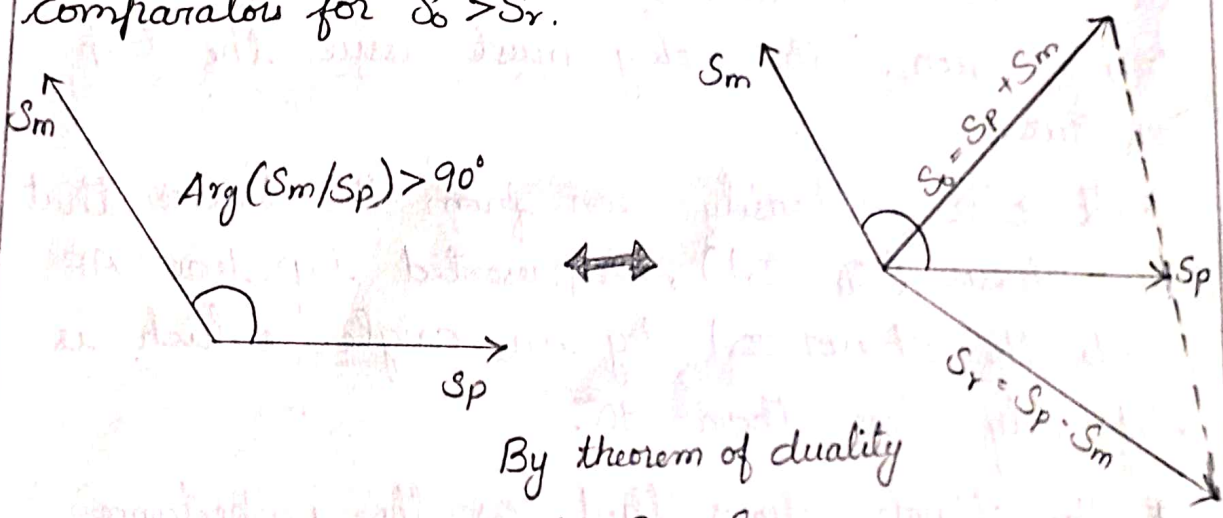 comparators for So > Sr.
Sm
Arg (Sm/Sp) > 90°
Sp
Sm
So = Sp + Sm
Sp
Sr = Sp - Sm
By theorem of duality